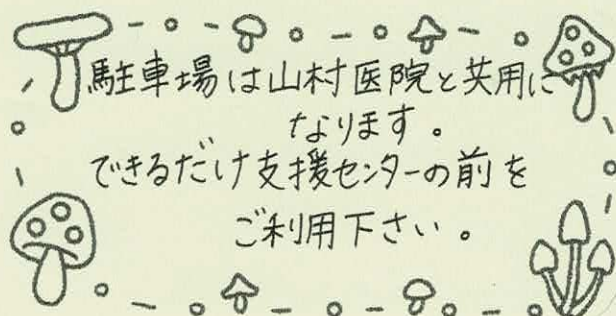 駐車場は山村医院と共用に
なります。
できるだけ支援センターの前を
ご利用下さい。